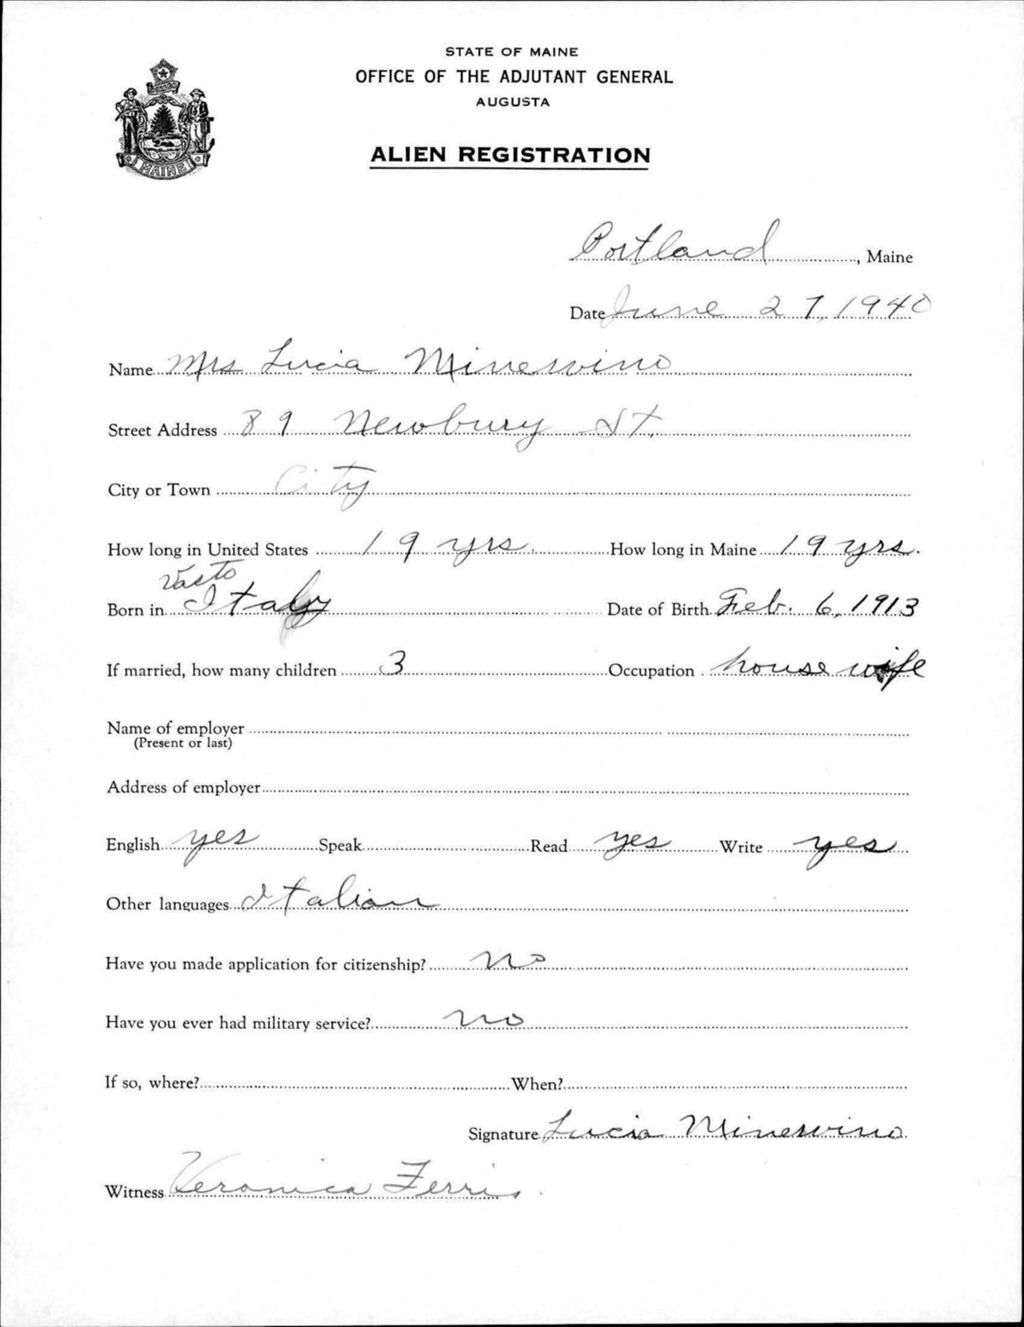 STATE OF MAINE
OFFICE OF THE ADJUTANT GENERAL
AUGUSTA
ALIEN REGISTRATION
MAINE
Portland, Maine
Date June 27, 1940
Name Mrs Lucia Minervino
Street Address 89 Newbury St.
City or Town City
How long in United States 19 yrs. How long in Maine 19 yrs.
Vasto
Born in Italy Date of Birth Feb. 6, 1913
If married, how many children 3 Occupation housewife
Name of employer
(Present or last)
Address of employer
English yes Speak Read yes Write yes
Other languages Italian
Have you made application for citizenship? No
Have you ever had military service? no
If so, where? When?
Signature Lucia Minervino
Witness Veronica Ferris